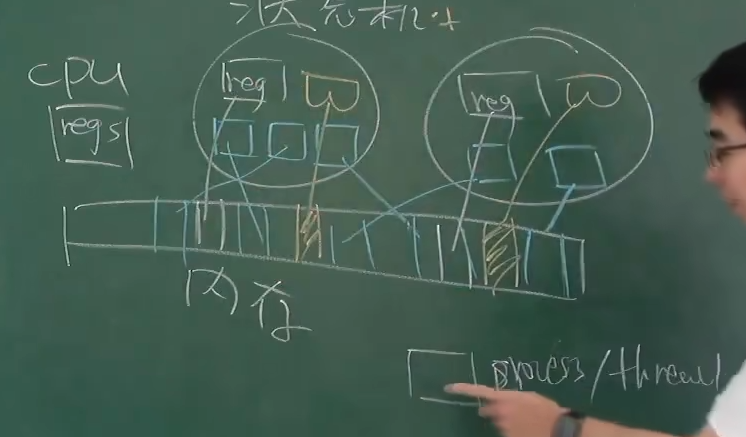 状态机
cpu
reg
reg
regs
内存
process/thread